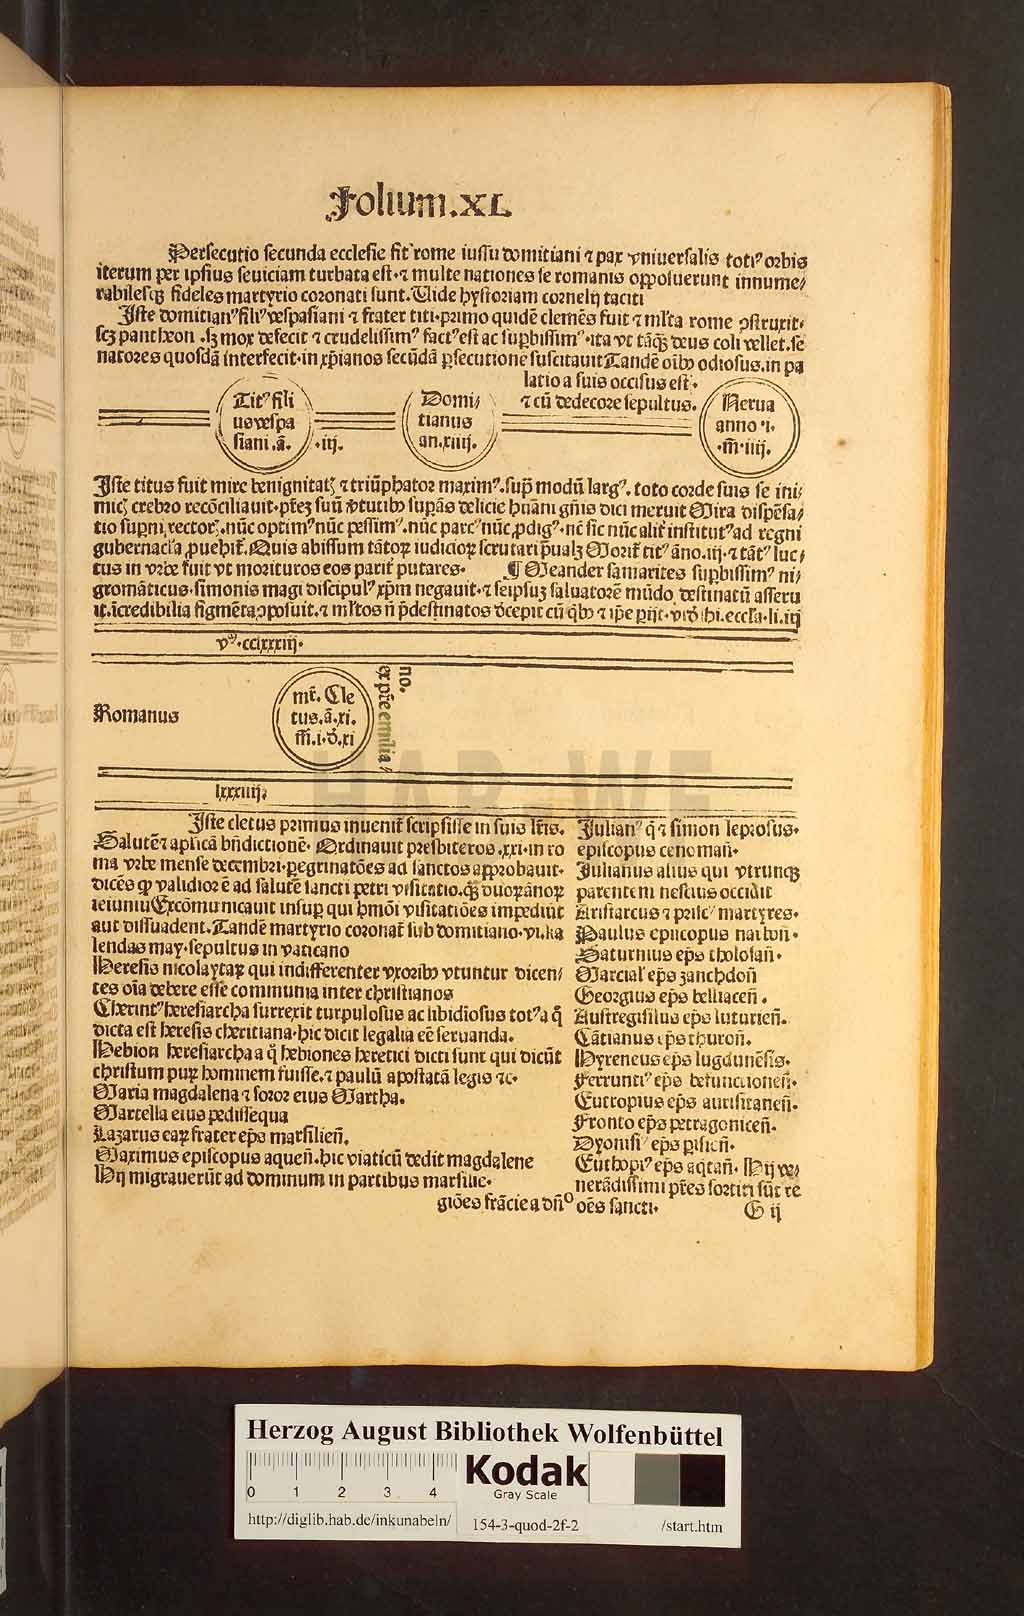 Folium.XL
Persecutio secunda ecclesie fit rome iussu domitiani ⁊ pax vniuersalis totiꝰ orbis
iterum per ipsius seuiciam turbata est·⁊ multe nationes se romanis opposuerunt innume/
rabilesqꝫ fideles martyrio coronati sunt. Uide hystoriam cornelij taciti
Iste domitianꝰ filiꝰ vespasiani ⁊ frater titi·primo quidē clemēs fuit ⁊ ml̄ta rome ꝯstruxit·
scꝫ pantheon ·sꝫ mox defecit ⁊ crudelissimꝰ factꝰ est ac suꝑbissimꝰ·ita vt tāqꝫ deus coli vellet. se
natores quosdā interfecit·in xp̄ianos secūdā ꝑsecutione suscitauit Tandē oībꝰ odiosus. in pa
latio a suis occisus est·
⁊ cū dedecore sepultus.
Titꝰ fili
us vespa
siani .ā.
·iij.
Domi/
tianus
an.xiiij.
Nerua
anno ·i·
·m̄·iiij.
Iste titus fuit mire benignitatꝫ ⁊ triūphator maximꝰ. suꝑ modū largꝰ. toto corde suis se ini/
micꝫ crebro recōciliauit· pter suū tutibꝰ supās delicie hūani gn̄is dici meruit Mira dispēsa/
tio supni rectorꝫ·nūc optimꝰ nūc pessimꝰ.nūc parcꝰ nūc ꝓdigꝰ·nē sic nūc alit̄ institutꝰ ad regni
gubernacl̄a ꝓuehit̄. Quis abissum tātoꝝ iudicioꝝ scrutari p̄ualꝫ Morit̄ titꝰ āno.iij·⁊ tātꝰ luc/
tus in vrbe fuit vt morituros eos parit̄ putares· ¶ Meander samarites suꝑbissimꝰ ni/
gromāticus·simonis magi discipulꝰ xp̄m negauit·⁊ seipsuꝫ saluatorē mūdo destinatū asseru
it·īcredibilia figmēta ꝓposuit·⁊ ml̄tos n̄ p̄destinatos decepit cū qbꝰ ⁊ ip̄e ꝑijt· hi.eccl̄a·li.iij
vᵐ·cclxxxiij·
Romanus
mr̄. Cle
tus.ā.xi.
m̄.i·d̄.xi
ex pr̄e emilia/
no.
lxxxiiij.
Iste cletus primus inuenit̄ scripsisse in suis lr̄is.
Salutē⁊ aplicā bn̄dictionē· Ordinauit presbiteros .xxi·in ro
ma vrbe mense decembri·ꝑegrinatōes ad sanctos approbauit·
dicēs ꝙ validior ē ad salutē sancti petri visitatio.qꝫ duoꝝ ānoꝝ
ieiuniu Excōmunicauit insuꝑ qui hmōi visitatiōes impediūt
aut dissuadent.Tandē martyrio coronat̄ sub domitiano·vi.ka
lendas may·sepultus in vaticano
Heresis nicolaytaꝝ qui indifferenter vxoribꝰ vtuntur dicen/
tes oīa debere esse communia inter christianos
Cherintꝰ heresiarcha surrexit turpulosus ac libidiosus totꝰ a q̄
dicta est heresis cheritiana·hic dicit legalia eē seruanda.
Hebion heresiarcha a q̄ hebiones heretici dicti sunt qui dicūt
christum puꝝ hominem fuisse.⁊ paulū apostatā legis ⁊c·
Maria magdalena ⁊ soror eius Martha.
Martella eius pedissequa
Lazarus eaꝝ frater ep̄s marsilien̄.
Maximus episcopus aquen̄.hic viaticū dedit magdalene
Hij migrauerūt ad dominum in partibus marsilie·
Julianꝰ q̄ ⁊ simon leprosus·
episcopus cenoman̄·
Julianus alius qui vtrunqꝫ
parentem nescius occidit
Aristarcus ⁊ priscꝰ martyres·
Paulus episcopus narbon̄·
Saturnius ep̄s tholosan̄·
Marcial ep̄s zanchdon̄
Georgius ep̄s belliacen̄ .
Austregisilus ep̄s luturien̄.
Cātianus ep̄s thuron̄.
Hyreneus ep̄s lugdunēsis·
Ferruntiꝰ ep̄s besuncionen̄·
Eutropius ep̄s aurisitanen̄·
Fronto ep̄s petragonicen̄.
Dyonisiꝰ ep̄s pisien̄.
Euthopiꝰ ep̄s aqtan̄· Hij ve/
nerādissimi pr̄es sortiti sūt re
giōes frācie a dn̄o oēs sancti·
G ij
HAB·WF
Herzog August Bibliothek Wolfenbüttel
0 1 2 3 4
Kodak
Gray Scale
http://diglib.hab.de/inkunabeln/
154-3-quod-2f-2
/start.htm